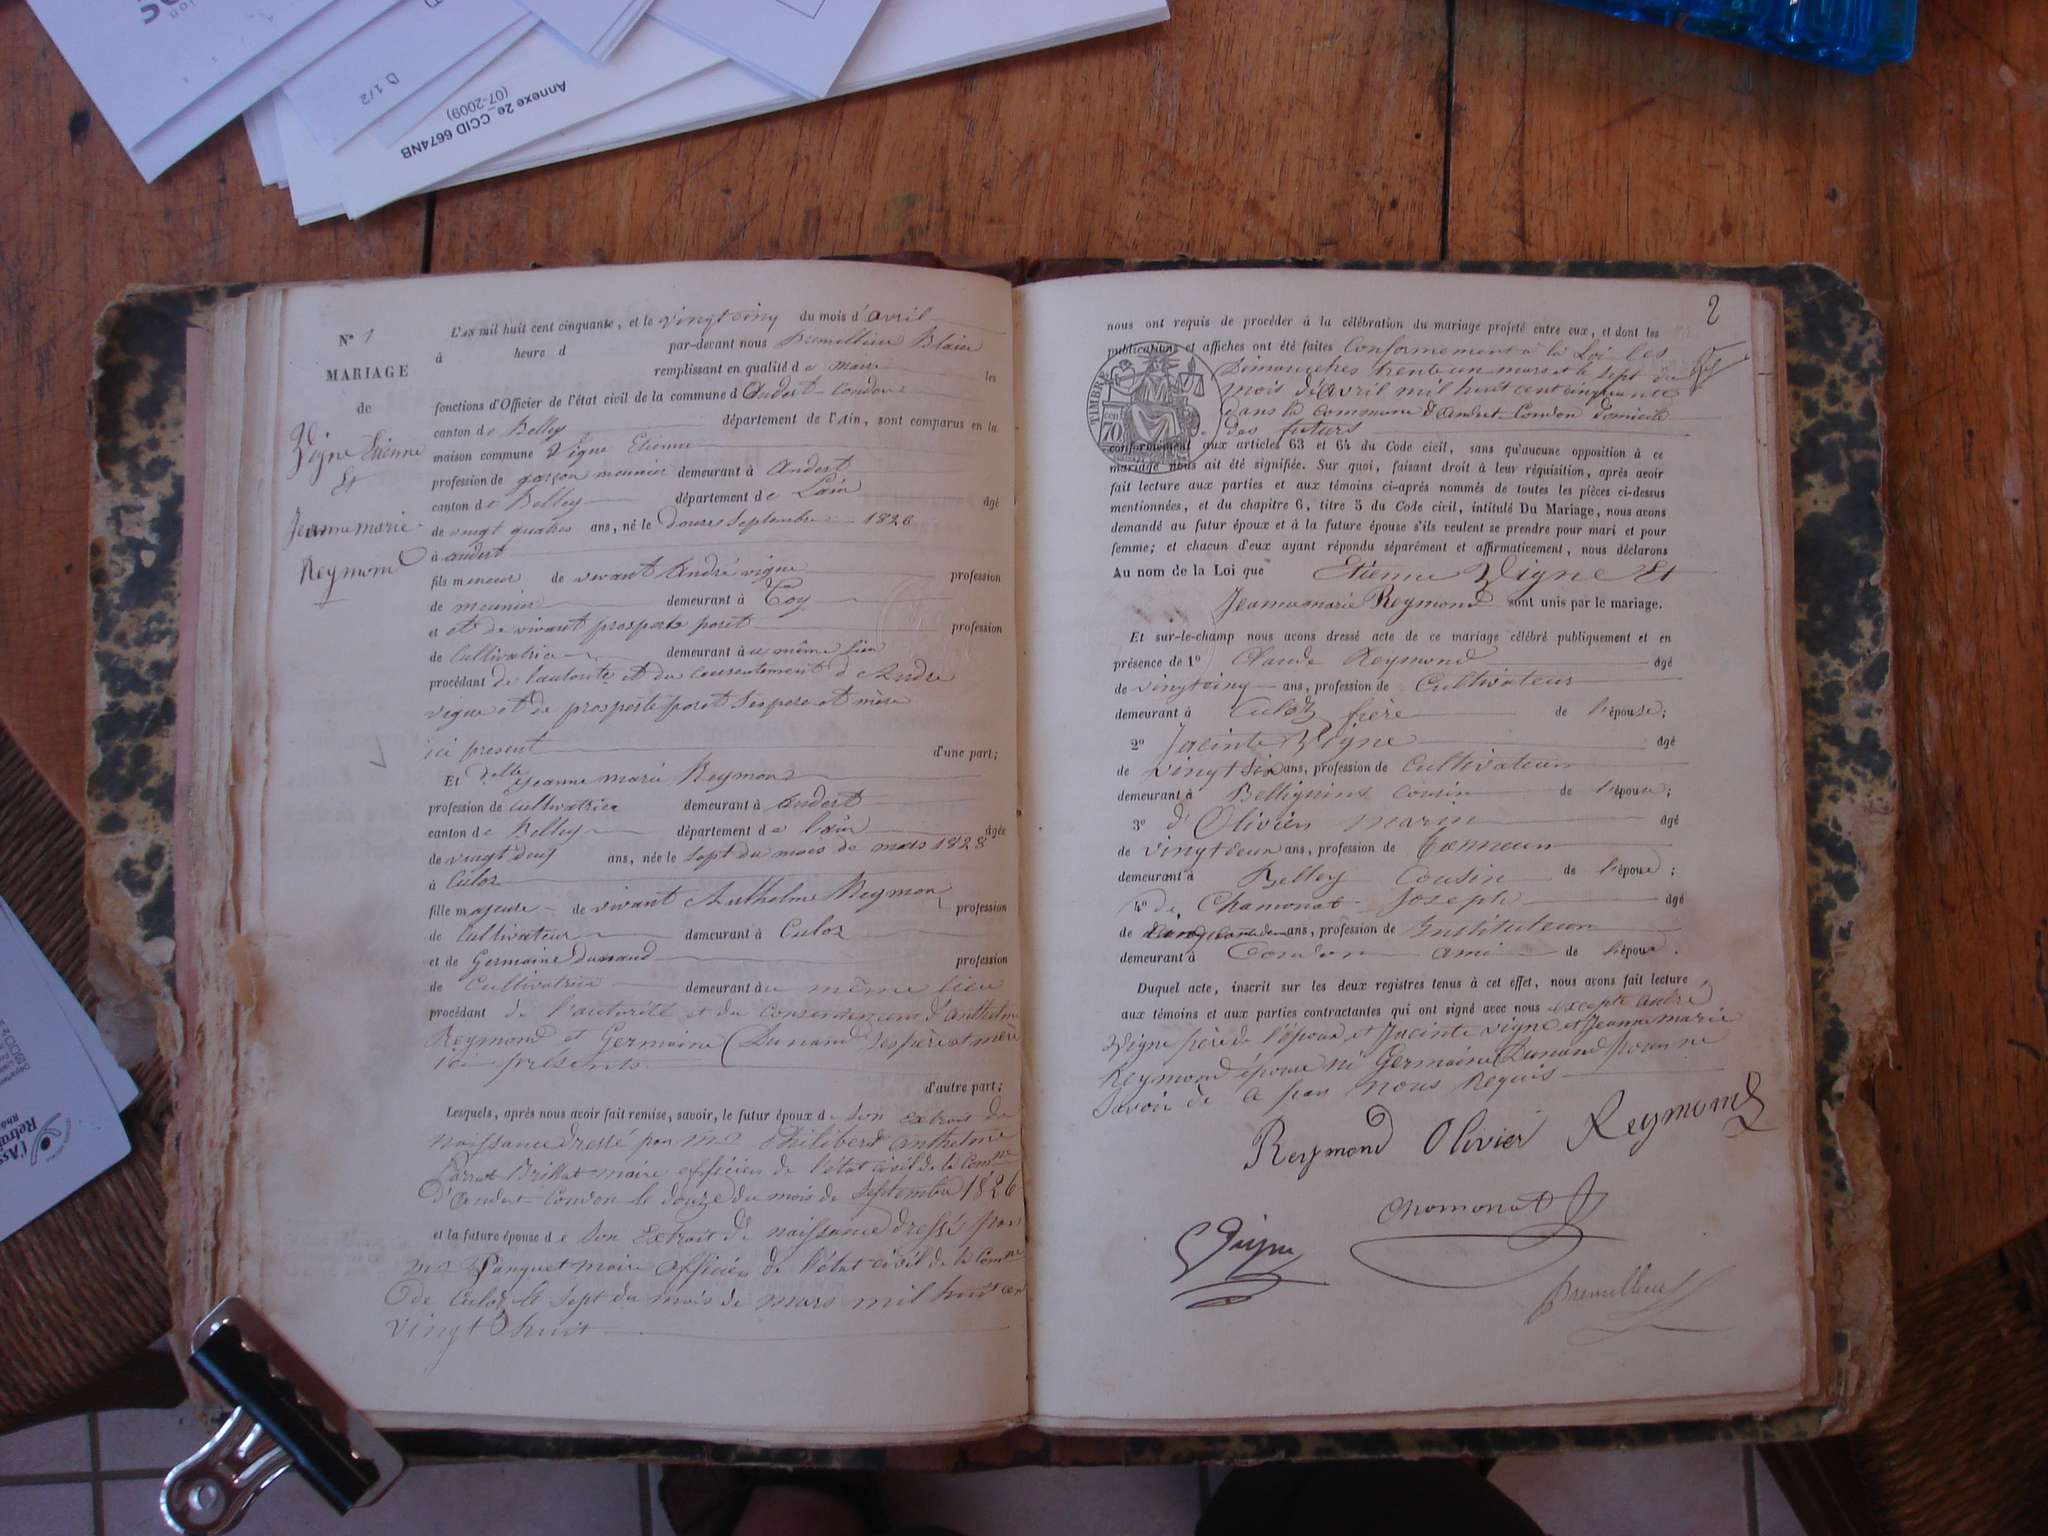 Annexe 2e_CCID 6674NB
(07-2009)
D 1/2
N° 1
MARIAGE
de
Vigne Etienne
Et
Jeanne marie
Reymond
L'an mil huit cent cinquante, et le vingt cinq du mois d'avril
à heure d par-devant nous Premillieu Blaise
remplissant en qualité de maire les
fonctions d'Officier de l'état civil de la commune d'Andert-Condon
canton de Belley département de l'Ain, sont comparus en la
maison commune Vigne Etienne
profession de garçon meunier demeurant à Andert
canton de Belley département de Lain âgé
de vingt quatre ans, né le douze septembre 1826
à andert
fils mineur de vivant André vigne profession
de meunier demeurant à Coy
et et de vivant prosperte poret profession
de Cultivatrice demeurant à u même lieu
procédant de l'autorité et du consentement d'Andre
vigne et de prosperte poret ses pere et mère
ici present d'une part;
Et delle Jeanne marie Reymond
profession de Cultivatrice demeurant à Andert
canton de Belley département de l'ain âgée
de vingt deux ans, née le sept du mois de mars 1828
à Culoz
fille majeure de vivant Anthelme Reymon profession
de Cultivateur demeurant à Culoz
et de Germaine Dunand profession
de Cultivatrice demeurant àu même lieu
procédant de l'autorité et du Consentement d'Anthelme
Reymond et Germaine Dunand ses père et mère
ici présents
d'autre part;
Lesquels, après nous avoir fait remise, savoir, le futur époux de son extrait de
naissance dressé par mr Philibert Anthelme
Parrat Brillat maire officier de l'état civil de la Comne
d'Andert-Condon le douze du mois de septembre 1826
et la future épouse de son Extrait de naissance dressé par
mr Panguet maire officier de l'état civil de la Comne
de Culoz le sept du mois de mars mil huit cent
vingt huit
2
nous ont requis de procéder à la célébration du mariage projeté entre eux, et dont les
publications et affiches ont été faites Conformement à la Loi les
Dimanches trente un mars et le sept du
mois d'avril mil huit cent cinquante
dans la commune d'Andert-Condon domicile
des futurs
TIMBRE
70 cen
conformément aux articles 63 et 64 du Code civil, sans qu'aucune opposition à ce
mariage nous ait été signifiée. Sur quoi, faisant droit à leur réquisition, après avoir
fait lecture aux parties et aux témoins ci-après nommés de toutes les pièces ci-dessus
mentionnées, et du chapitre 6, titre 5 du Code civil, intitulé Du Mariage, nous avons
demandé au futur époux et à la future épouse s'ils veulent se prendre pour mari et pour
femme; et chacun d'eux ayant répondu séparément et affirmativement, nous déclarons
Au nom de la Loi que Etienne Vigne Et
Jeannemarie Reymond sont unis par le mariage.
Et sur-le-champ nous avons dressé acte de ce mariage célébré publiquement et en
présence de 1° Claude Reymond âgé
de vingt cinq ans, profession de Cultivateur
demeurant à Culoz frère de l'épouse;
2° Jacinte Vigne âgé
de vingt six ans, profession de Cultivateur
demeurant à Bellignins cousin de l'époux;
3° d' Olivier marin âgé
de vingt deux ans, profession de
demeurant à Belley Cousin de l'époux;
4° de Chamonat Joseph âgé
de ans, profession de Instituteur
demeurant à Condon ami de l'époux.
Duquel acte, inscrit sur les deux registres tenus à cet effet, nous avons fait lecture
aux témoins et aux parties contractantes qui ont signé avec nous excepté André
Vigne père de l'époux et Jacinte vigne et Jeanne Marie
Reymond épouse ni Germaine Dunand pour ne
savoir de ce par nous Requis
Reymond Olivier Reymond
Chomonat
Vigne
Premillieu